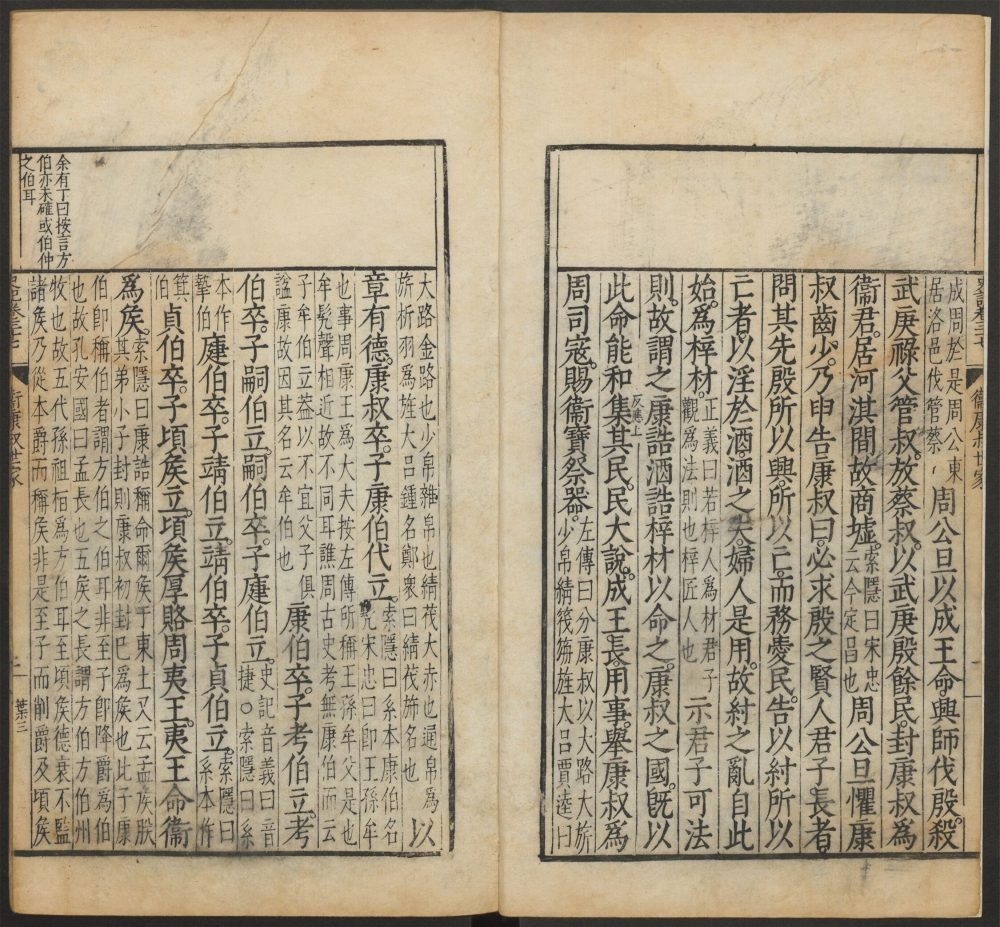 衞康叔世家
成周於是周公東
居洛邑伐管蔡
周公旦以成王命興師伐殷。殺
武庚祿父管叔。放蔡叔。以武庚殷餘民。封康叔爲
衞君。居河淇間故商墟。
索隱曰宋忠
云今定昌也
周公旦懼康
叔齒少。乃申告康叔曰。必求殷之賢人君子長者
問其先殷所以興。所以亡。而務愛民。告以紂所以
亡者。以淫於酒。酒之失。婦人是用。故紂之亂自此
始。爲梓材。
正義曰若梓人爲材君子
觀爲法則也梓匠人也
示君子可法
則。故謂之康誥酒誥梓材以命之。康叔之國。旣以
此命能和集其民。民大說。成王長。用事。舉康叔爲
反應上
周司寇。賜衞寶祭器。
左傳曰分康叔以大路大旂
少帛綪筏旃旌大呂賈逵曰
大路金路也少帛雜帛也綪茷大赤也通帛爲
旃析羽爲旌大呂鍾名鄭衆曰綪茷旆名也
以
章有德。康叔卒。子康伯代立。
索隱曰系本康伯名
髡宋忠曰即王孫牟
也事周康王爲大夫按左傳所稱王孫牟父是也
牟髡聲相近故不同耳譙周古史考無康伯而云
子牟伯立蓋以不宜父子俱
謚康故因其名云牟伯也
康伯卒。子考伯立。考
伯卒。子嗣伯立。嗣伯卒。子疌伯立。
史記音義曰音
捷○索隱曰系
本作
摯伯
疌伯卒。子靖伯立。靖伯卒。子貞伯立。
索隱曰
系本作
箕
伯
貞伯卒。子頃矦立。頃矦厚賂周夷王。夷王命衞
爲矦。
索隱曰康誥稱命爾矦于東土又云孟矦朕
其弟小子封則康叔初封已爲矦也此子康
伯即稱伯者謂方伯之伯耳非至子即降爵爲伯
也故孔安國曰孟長也五矦之長謂方伯方伯州
牧也故五代孫祖恒爲方伯耳至頃矦德衰不監
諸矦乃從本爵而稱矦非是至子而削爵及頃矦
余有丁曰按言方
伯亦未確或伯仲
之伯耳
衞康叔世家
葉三